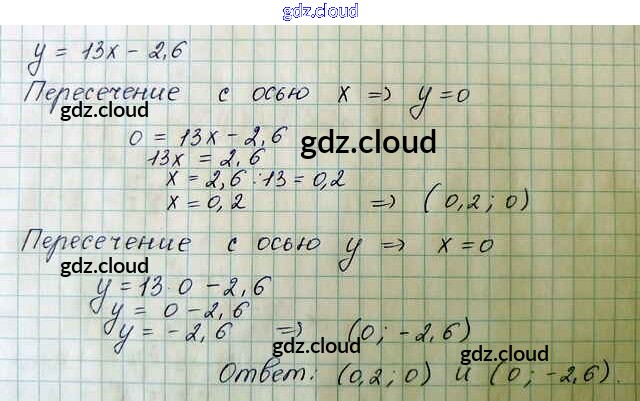 gdz.cloud
y = 13x - 2,6
Пересечение с осью x => y=0
gdz.cloud
0 = 13x - 2,6
gdz.cloud
13x = 2,6
x = 2,6 : 13 = 0,2
x = 0,2 => (0,2; 0)
Пересечение с осью y => x=0
gdz.cloud
y = 13·0 - 2,6
y = 0 - 2,6
y = -2,6 => (0; -2,6)
gdz.cloud gdz.cloud
Ответ: (0,2; 0) и (0; -2,6).